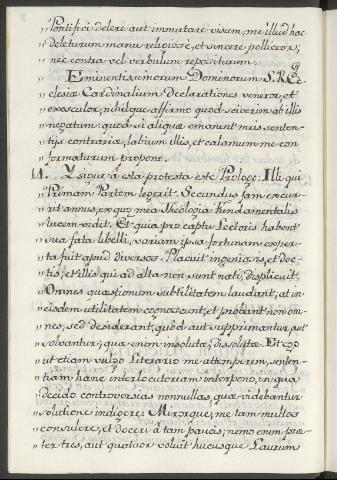 "Pontifici delere aut immutare visum, me illud hac
"deleturum manu religiose, et sincere polliceor;
"nec contra vel verbulum repositurum.
" Eminentissimorum Dominorum S. R. Ec-
"clesiæ Cardinalium Declarationes veneror, et
"exosculor, nihilque affirmo quod sciverim ab illis
"negatum: quod si aliquæ emanent meis senten-
"tijs contrariæ, labium illis, et calamum me con-
"formaturum propono.
Y sigue à esta protesta este Prologo: Illi qui
"Primam Partem legerit. Secundus jam excur-
"rit annus, ex quo mea Theologia Fundamentalis
"lucem vidit. Et quia pro captu Lectoris habent
"sua fata libelli, variam ipsa fortunam exper-
"ta fuit apud diversos. Placuit ingeniosis, et doc-
"tis, et illis qui ad alta non sunt nati, displicuit.
"Omnes quæstionum subtilitatem laudant, at in
"eisdem utilitatem cognoscunt, et probant non om-
"nes, sed desiderant, quod aut supprimantur, aut
"solvantur, quæ enim insoluta, dissolutæ. Et ego
"ut etiam vulgo Literario me attemperem, senten-
"tiam hanc interlocutoriam interpono, in qua
"decido controversias nonnullas, quæ videbantur
"solutione indigere: Mirorque, me tam multos
"consulere, et doceri à tam paucis; nemo enim præ-
"ter tres, aut quatuor voluit hucusque Laurum